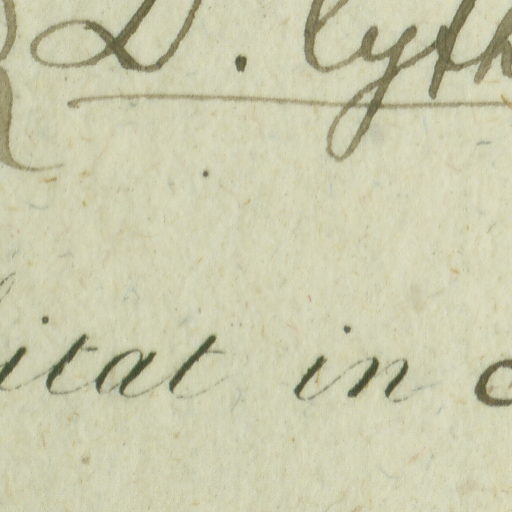 D. Cyth
itat in